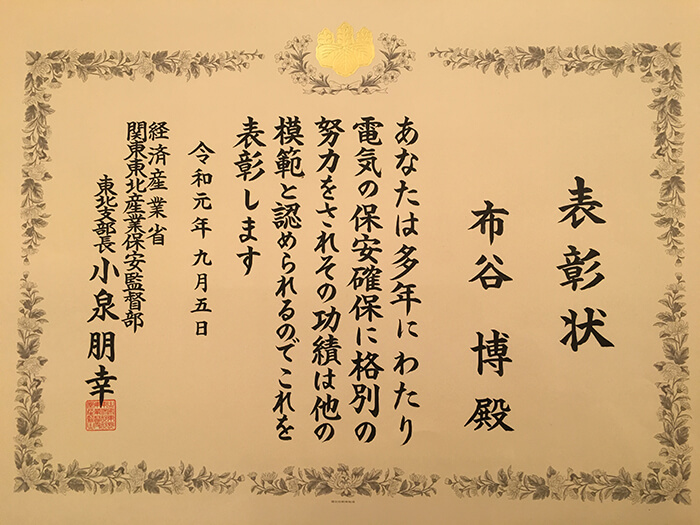 表彰状
布谷 博 殿
あなたは多年にわたり
電気の保安確保に格別の
努力をされその功績は他の
模範と認められるのでこれを
表彰します
令和元年九月五日
経済産業省
関東東北産業保安監督部
東北支部長 小泉朋幸